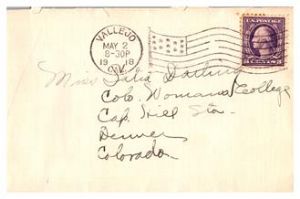 VALLEJO
MAY 2
8-30P
1918
CAL.
U.S. POSTAGE
3 CENTS 3
Miss Julia Darling
Colo. Womans College
Cap. Hill Sta.
Denver
Colorado.